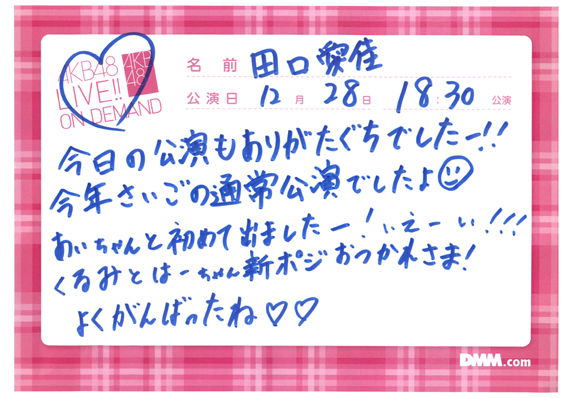 AKB48
LIVE!!
ON DEMAND
AKB
48
名前 田口愛佳
公演日 12月 28日 18:30 公演
今日の公演もありがたぐちでしたー!!
今年さいごの通常公演でしたよ
あいちゃんと初めて出ましたー!いえーい!!!
くるみとはーちゃん新ポジおつかれさま!
よくがんばったね♡♡
DMM.com